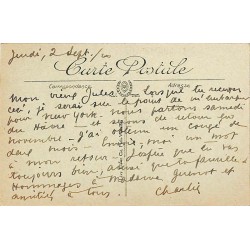 Jeudi, 2 Sept./20
Carte Postale
Correspondance Adresse
Mon vieux Jules - Lorsque tu recevras
ceci, je serai sur le point de m'embarquer
pour New-York. Nous partons samedi
du Havre - et serons de retour en
novembre - J'ai obtenu un congé de
deux mois - bref, mot
à mon retour - J'espère que tu vas
toujours bien, ainsi que ta famille -
Hommages à Madame et
amitiés à tous.
Charlie